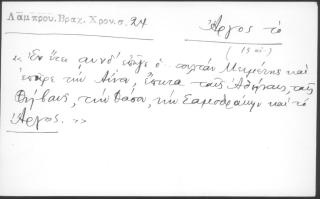 Λάμπρου. Βραχ. Χρον. σ. 24
Ἄργος τὸ
(15 αἰ.)
« Ἐν ἔτει ͵ϛ ἐπῆρε ὁ σουλτὰν Μεχμέτης καὶ
ἐπῆρε τὴν Αἶνον, ἔπειτα ταῖς Ἀθήναις, ταῖς
Θήβαις, τὴν Θάσο, τὴν Σαμοθρᾴκην καὶ τὸ
Ἄργος. »